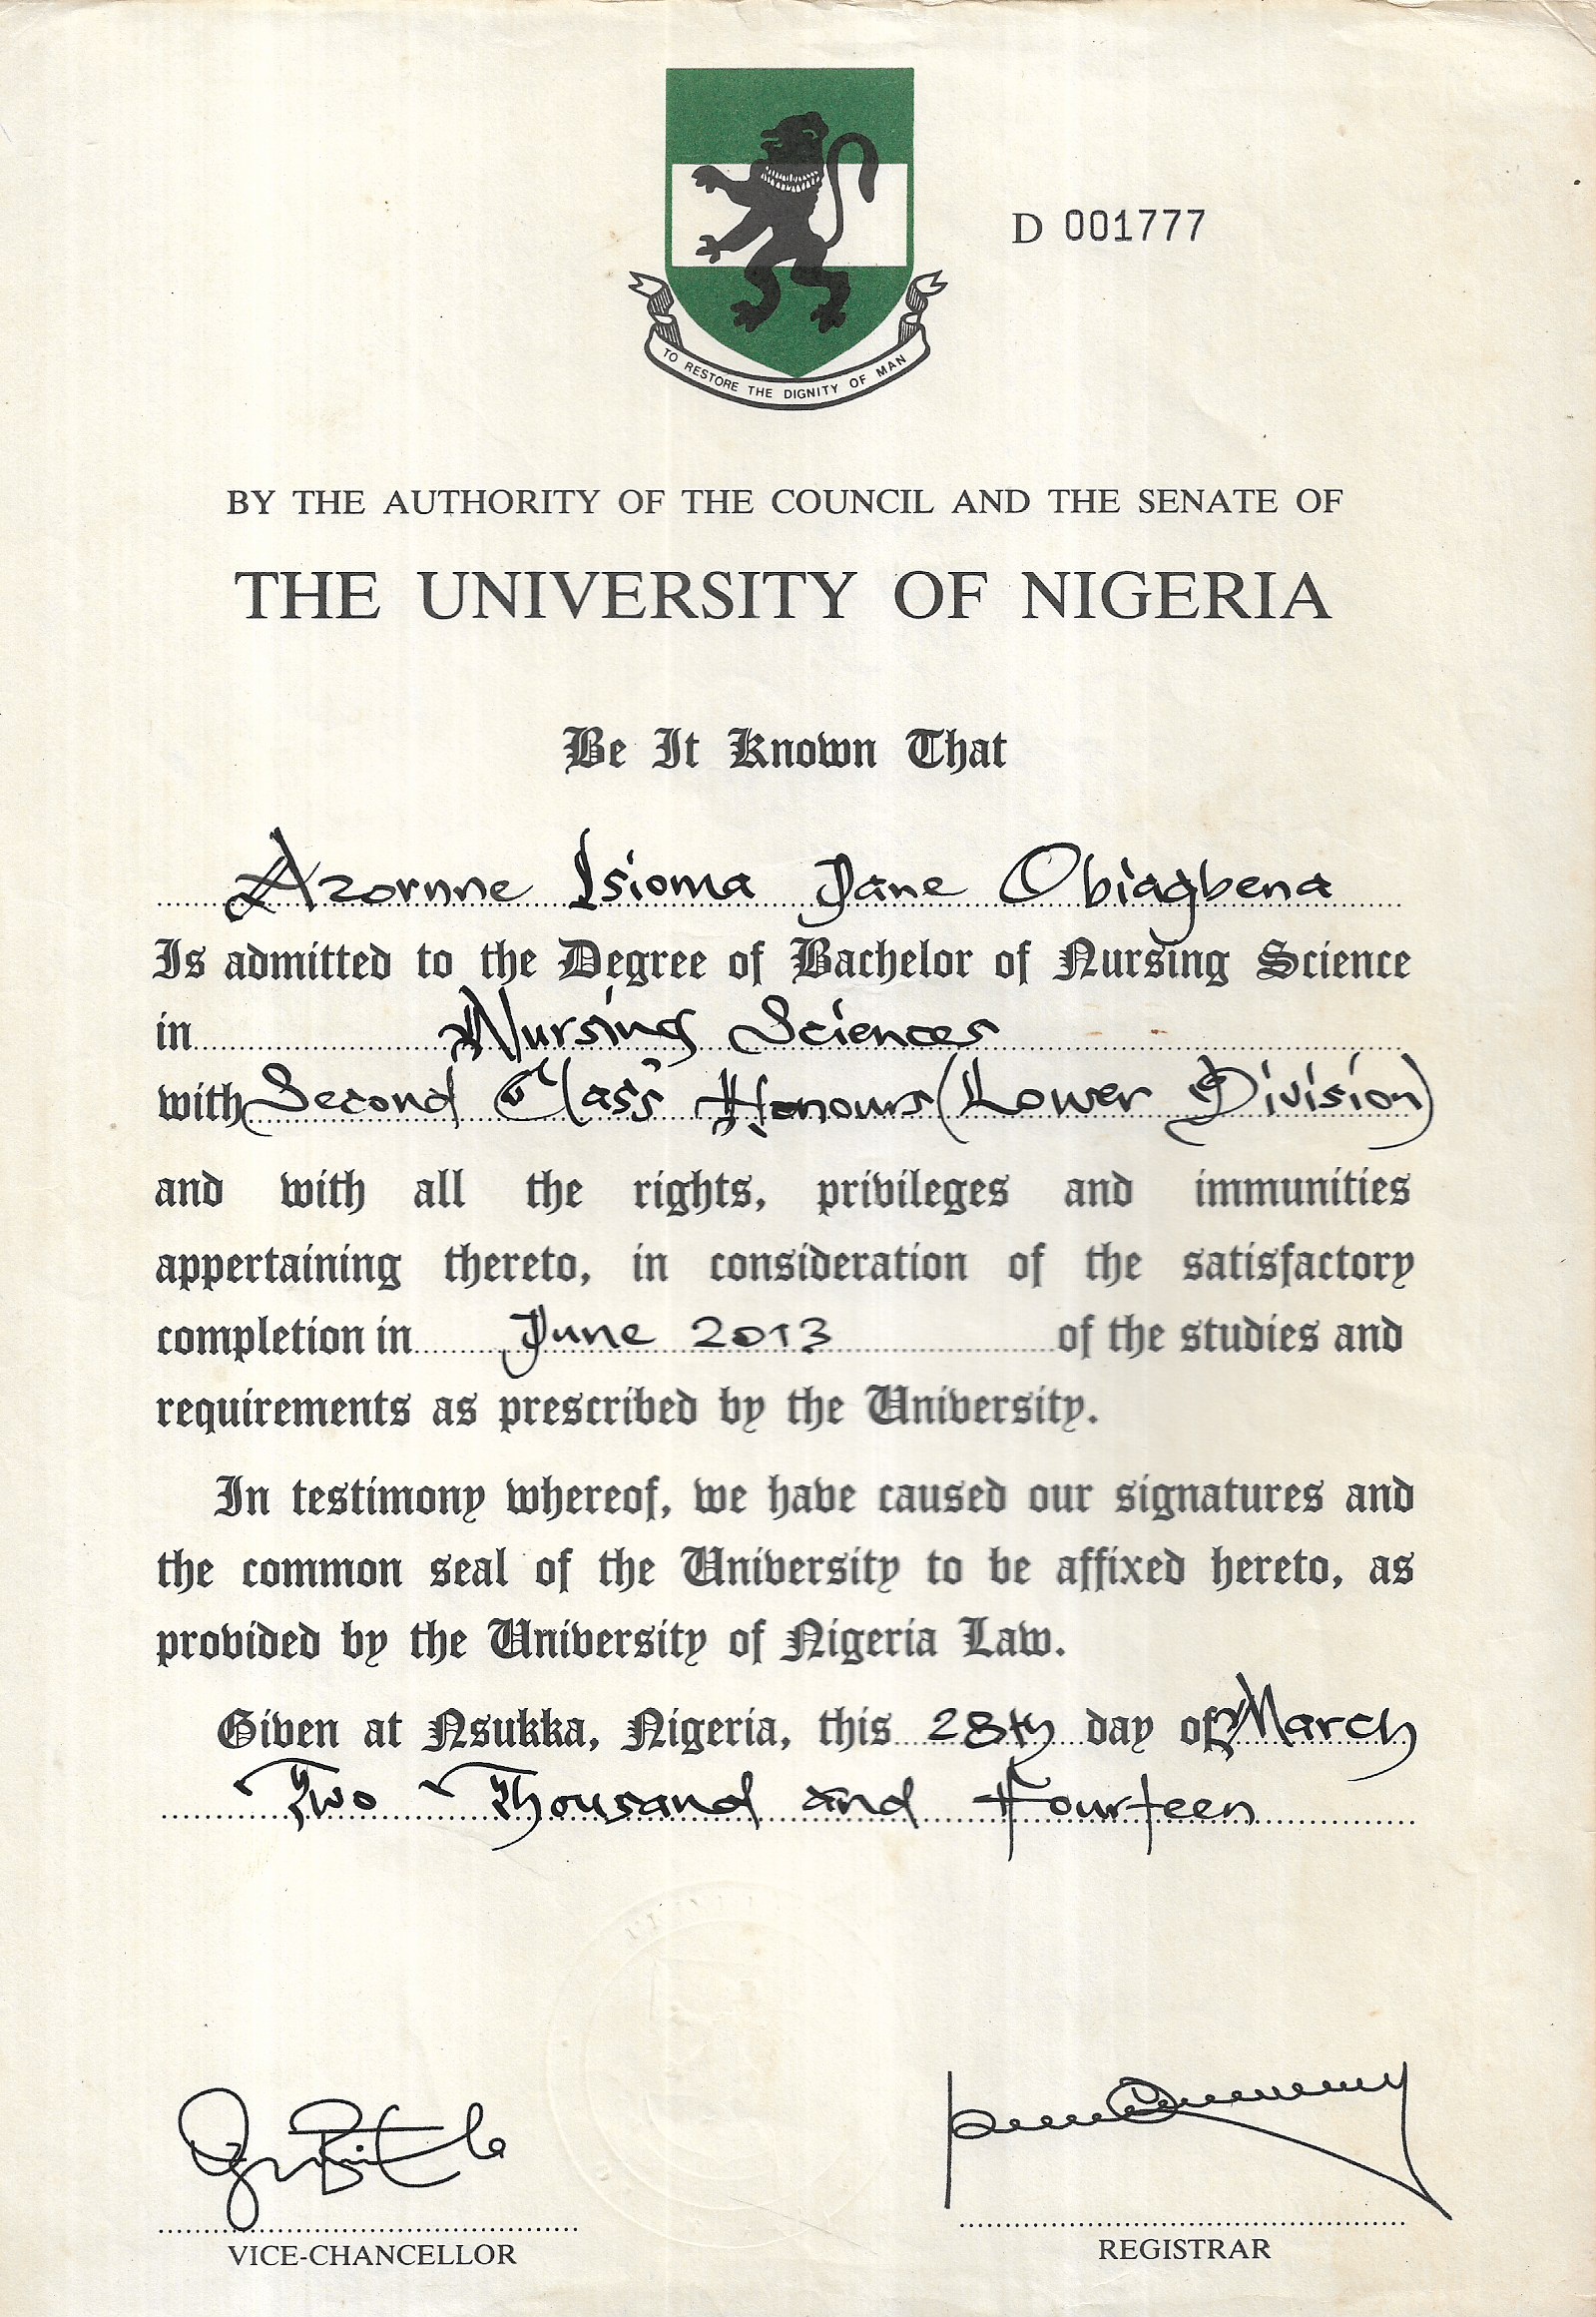 D 001777
TO RESTORE THE DIGNITY OF MAN
BY THE AUTHORITY OF THE COUNCIL AND THE SENATE OF
THE UNIVERSITY OF NIGERIA
Be It Known That
Azornne Isioma Jane Obiagbena
Is admitted to the Degree of Bachelor of Nursing Science
in Nursing Sciences
with Second Class Honours (Lower Division)
and with all the rights, privileges and immunities
appertaining thereto, in consideration of the satisfactory
completion in June 2013 of the studies and
requirements as prescribed by the University.
In testimony whereof, we have caused our signatures and
the common seal of the University to be affixed hereto, as
provided by the University of Nigeria Law.
Given at Nsukka, Nigeria, this 28th day of March
Two Thousand and Fourteen
VICE-CHANCELLOR
REGISTRAR